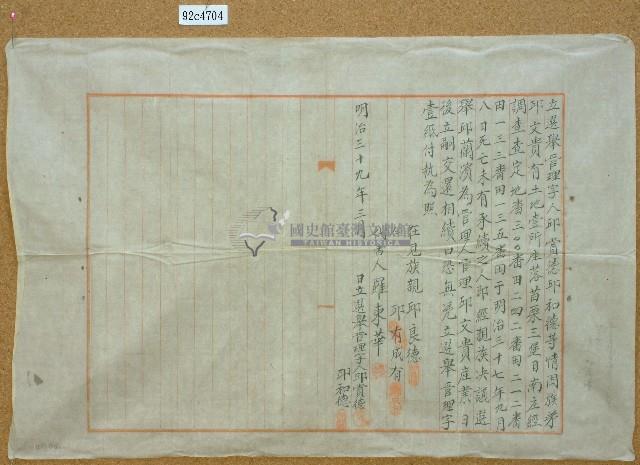 92c4704
立選舉管理字人邱賞德邱和德等情因族弟
邱文貴有土地壹所座落苗栗三堡日南庄經
調查查定地番三〇番田二四二番田二一二番
田一三三番田一三五番田于明治三十七年九月
八日死亡未有承續之人邱經親族決議選
舉邱蘭濱為管理人管理邱文貴產業日
後立嗣交還相續口恐無憑立選舉管理字
壹紙付執為照
在見族親邱良德
邱有成有
人羅東華
明治三十九年三月 日立選舉管理字人邱賞德
邱和德
國史館臺灣文獻館
TAIWAN HISTORICA